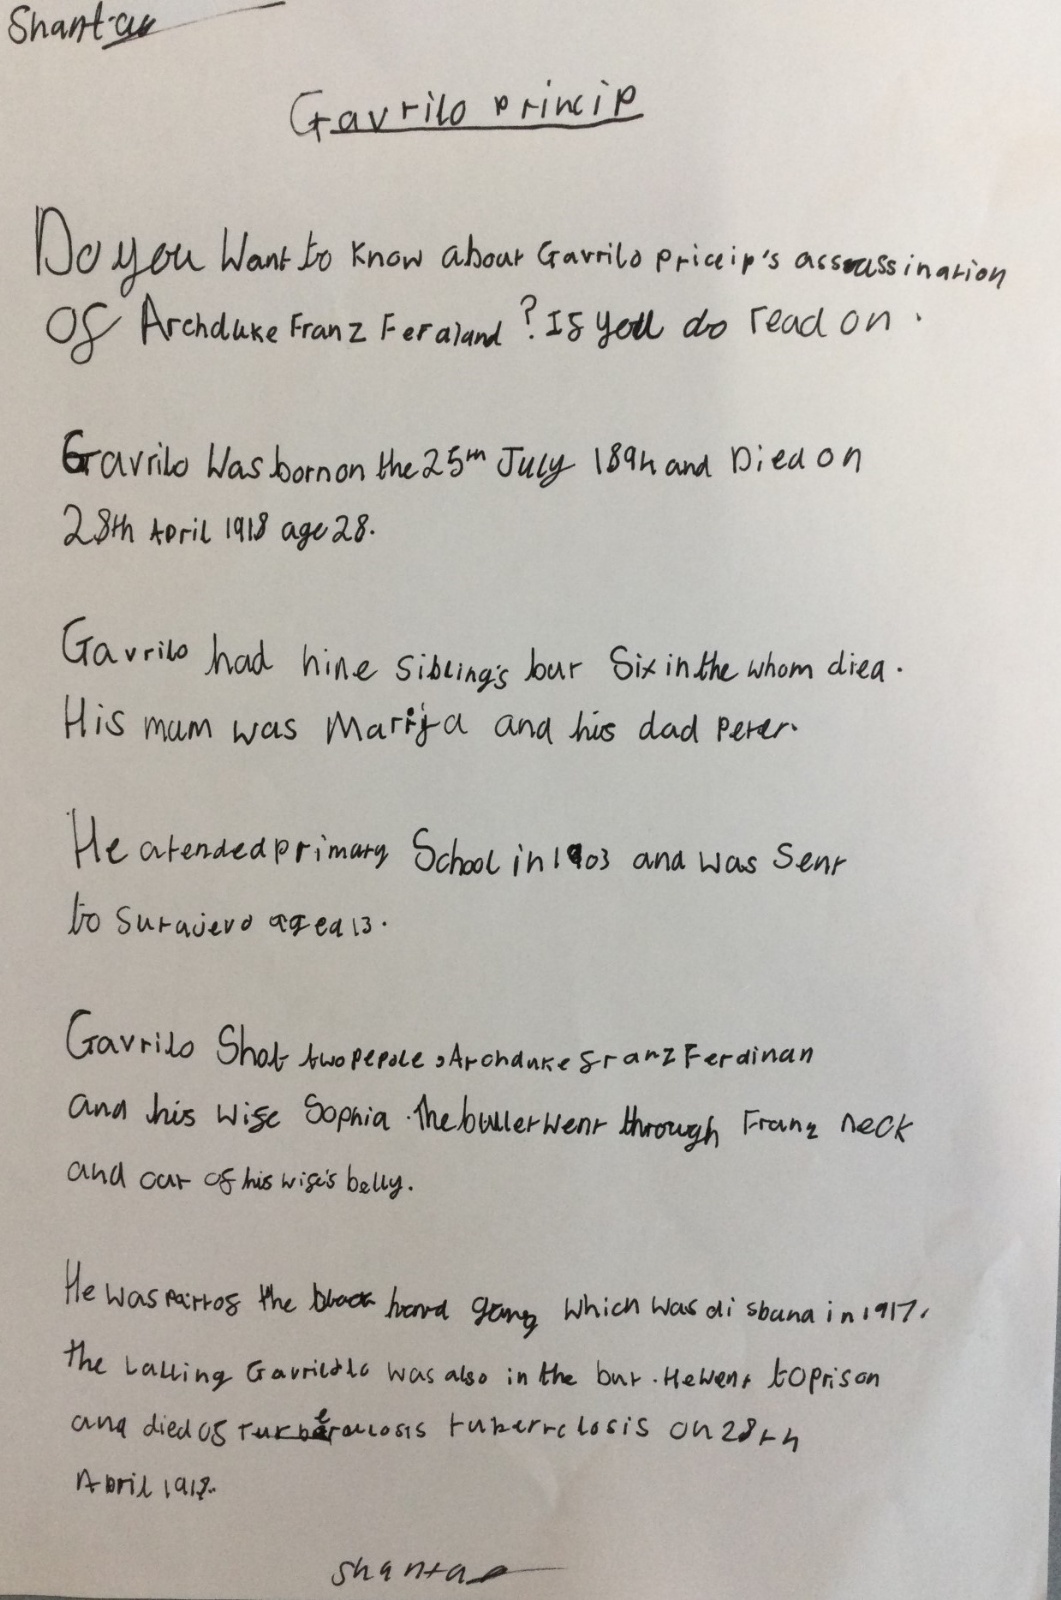 Shantae
Gavrilo princip
Do you Want to Know about Gavrilo priceip's assassination
of Archduke Franz Feraland ? If you do read on .
Gavrilo Was born on the 25th July 1894 and Died on
28th April 1918 age 28.
Gavrilo had nine sibling's but Six in the whom died .
His mum was Marija and his dad Peter.
He atended primary School in 1903 and was Sent
to Surajevo aged 13 .
Gavrilo Shot two pepole , Archduke franz Ferdinan
and his wife Sophia . the bullet went through Franz neck
and out of his wife's belly.
He was part of the black hand gang which was disband in 1917.
the Gavrilo was also in the but . He went to prison
and died of tuberrclosis on 28th
April 1918.
shantae